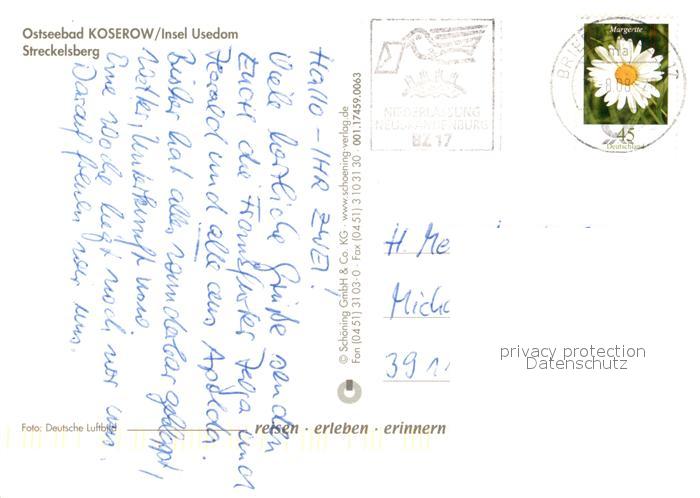 Ostseebad KOSEROW/Insel Usedom
Streckelsberg
Hallo - IHR ZWEI!
Viele herzliche Grüße senden
Euch die
Harald und alle aus Apolda.
Bisher hat alles wunderbar geklappt,
Wetter, Unterkunft usw.
Eine Woche liegt noch vor uns.
Darauf freuen wir uns.
© Schöning GmbH & Co. KG · www.schoening-verlag.de
Fon (04 51) 31 03-0 · Fax (04 51) 3 10 31 30 001.17459.0063
NIEDERLASSUNG
NEUBRANDENBURG
BZ 17
BRIE 17
Margerite
45
Deutschland
H. Me
Micha
39
privacy protection
Datenschutz
Foto: Deutsche Luftbild
reisen · erleben · erinnern